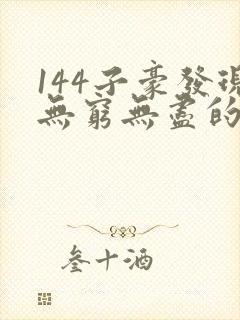 144子豪發現
無窮無盡的
叁十酒